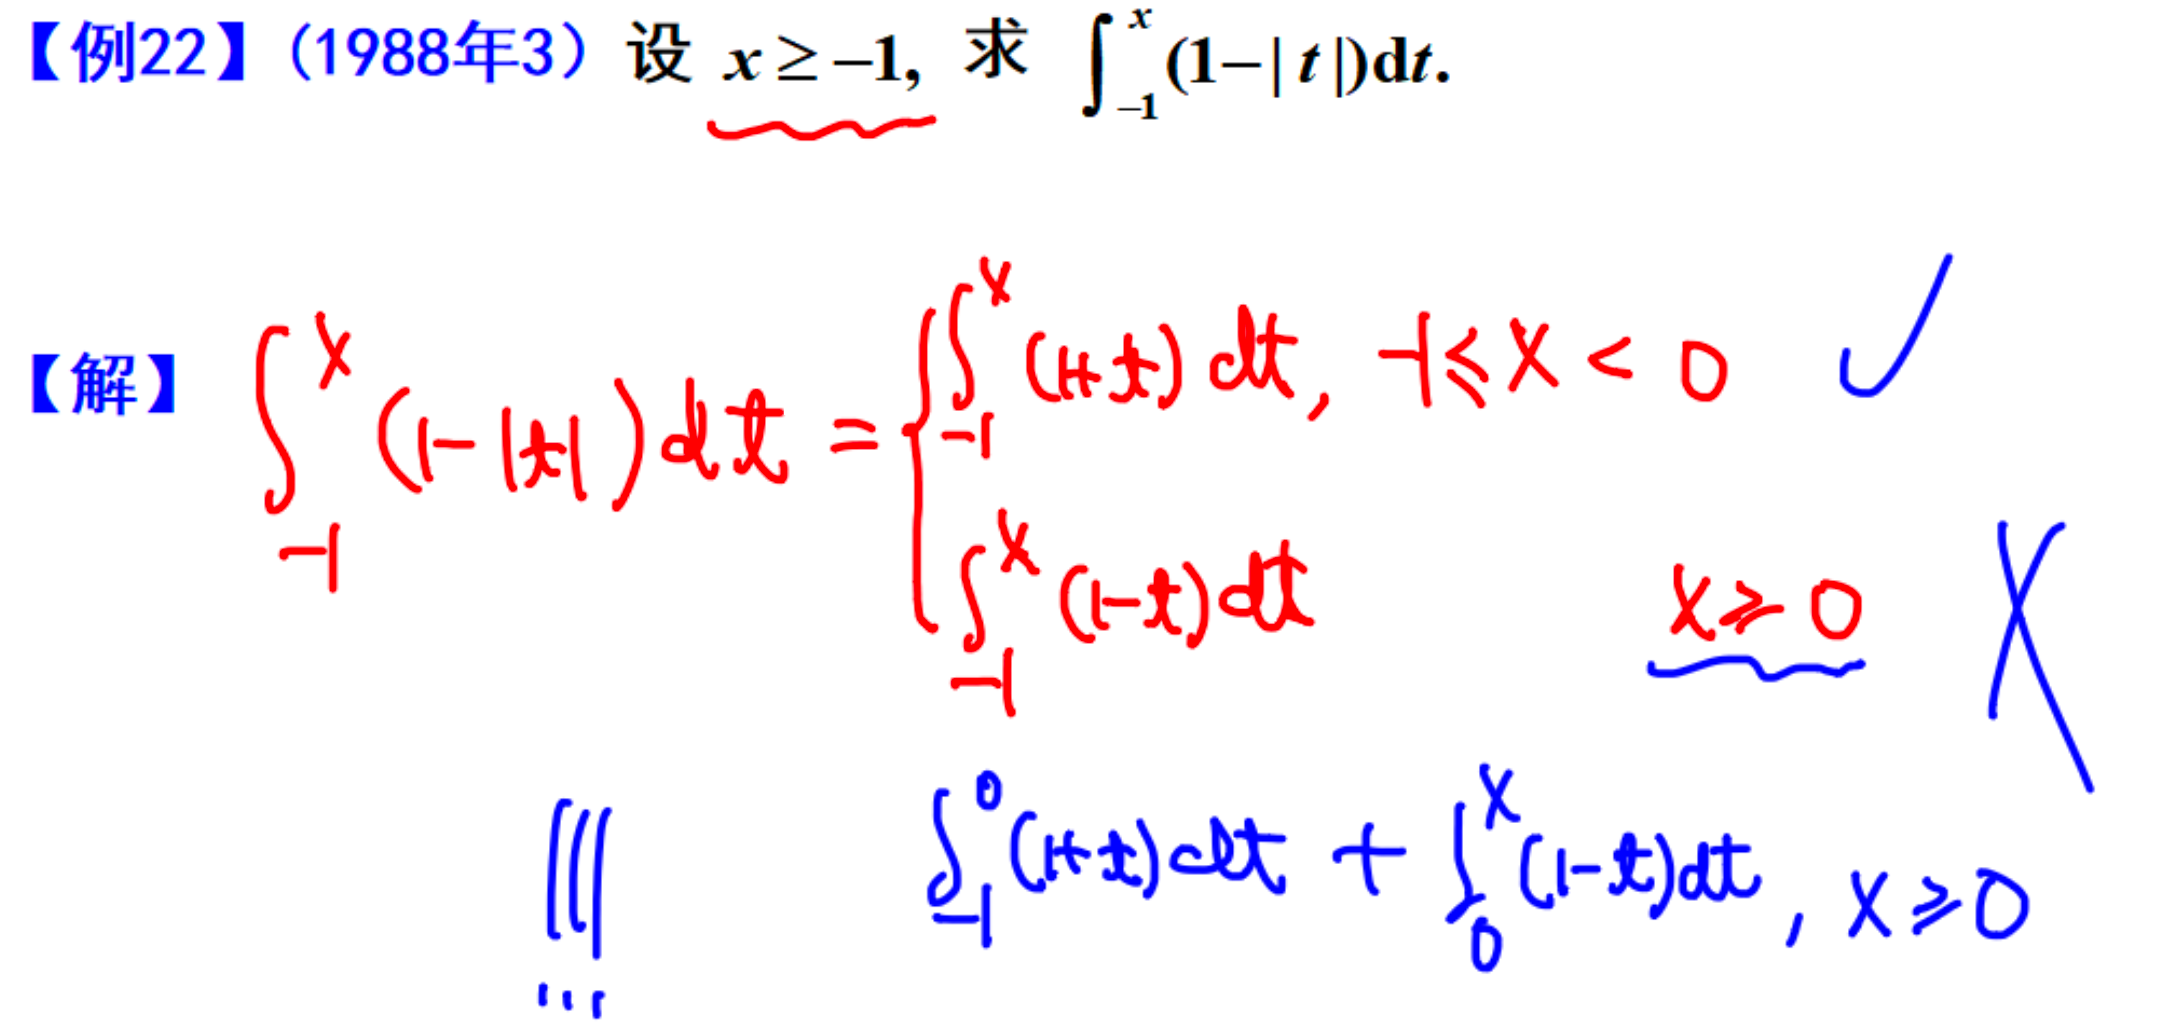 【例22】(1988年3) 设 x ≥ −1, 求 ∫_{−1}^{x} (1−| t |)dt.
【解】 ∫_{−1}^{x} (1−|t|)dt = { ∫_{−1}^{x} (1+t) dt, −1 ≤ x < 0 ✓
∫_{−1}^{x} (1−t) dt x ≥ 0 ✗
!!! ∫_{−1}^{0} (1+t)dt + ∫_{0}^{x} (1−t)dt, x ≥ 0